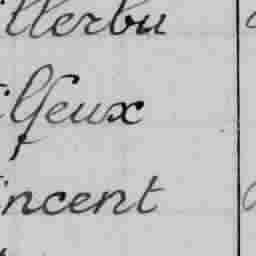 illerbu
ilfeux
incent